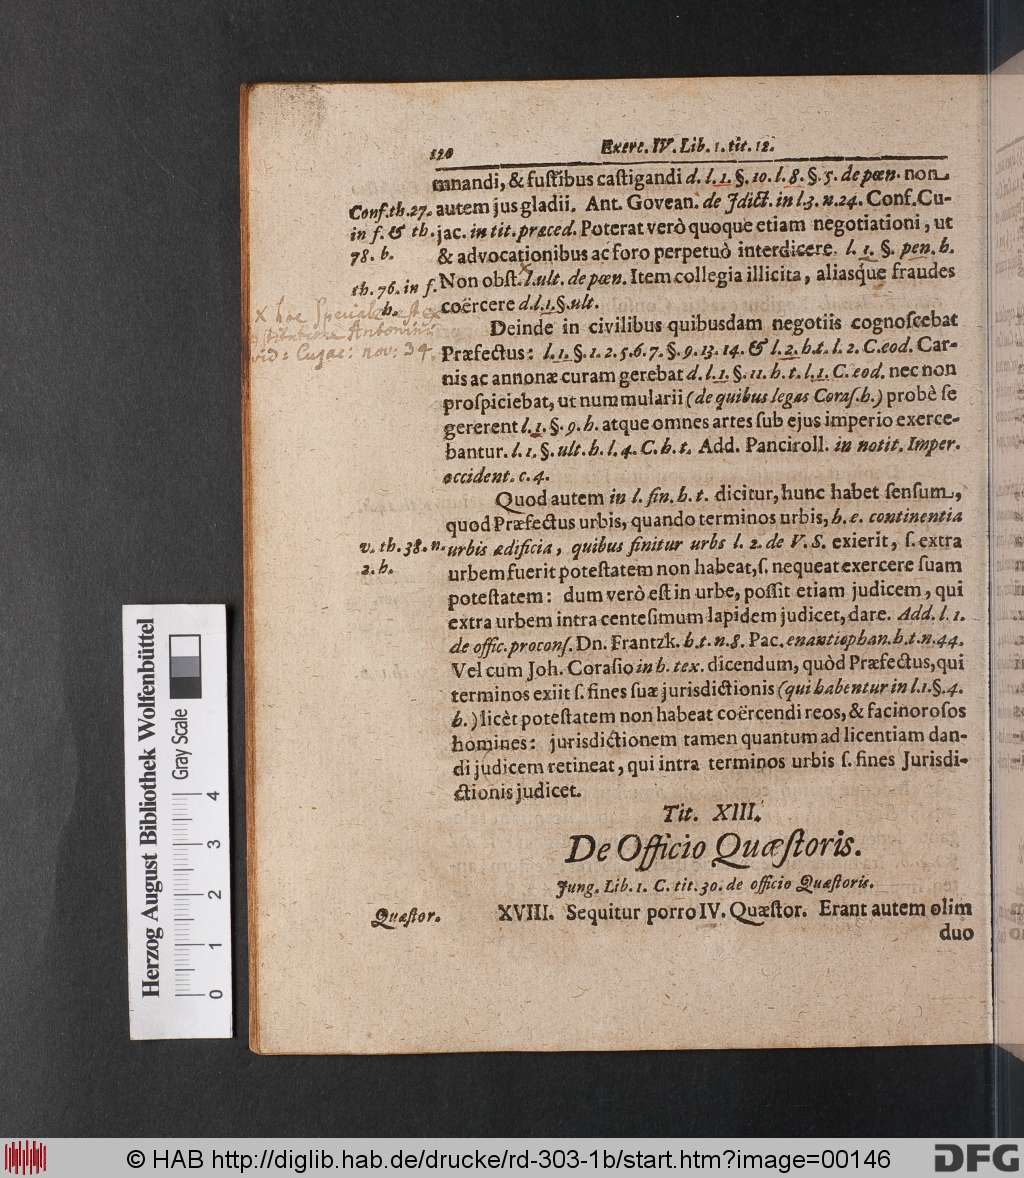 120 Exerc. IV. Lib. 1. tit. 12.
mnandi, & fuſtibus caſtigandi d. l. 1. §. 10. l. 8. §. 5. de pœn. non
Conf. th. 27.
autem jus gladii. Ant. Govean. de Jdict. in l. 3. n. 24. Conf. Cu-
in f. & th.
jac. in tit. præced. Poterat verò quoque etiam negotiationi, ut
78. h.
& advocationibus ac foro perpetuò interdicere. l. 1. §. pen. h.
th. 76. in f.
Non obſt. l. ult. de pœn. Item collegia illicita, aliasque fraudes
h.
coërcere d. l. 1. §. ult.
x hoc Speciale est ex
Antonini
vid: Cujac: nov: 34.
Deinde in civilibus quibusdam negotiis cognoſcebat
Præfectus: l. 1. §. 1. 2. 5. 6. 7. §. 9. 13. 14. & l. 2. h. t. l. 2. C. eod. Car-
nis ac annonæ curam gerebat d. l. 1. §. 11. h. t. l. 1. C. eod. nec non
proſpiciebat, ut nummularii (de quibus legas Coraſ. h.) probè ſe
gererent l. 1. §. 9. h. atque omnes artes ſub ejus imperio exerce-
bantur. l. 1. §. ult. h. l. 4. C. h. t. Add. Panciroll. in notit. Imper.
occident. c. 4.
Quod autem in l. fin. h. t. dicitur, hunc habet ſenſum,
quod Præfectus urbis, quando terminos urbis, h. e. continentia
v. th. 38. n.
urbis ædificia, quibus finitur urbs l. 2. de V. S. exierit, ſ. extra
2. h.
urbem fuerit poteſtatem non habeat, ſ. nequeat exercere ſuam
poteſtatem: dum verò eſt in urbe, poſſit etiam judicem, qui
extra urbem intra centeſimum lapidem judicet, dare. Add. l. 1.
de offic. proconſ. Dn. Frantzk. h. t. n. 8. Pac. enantiophan. h. t. n. 44.
Vel cum Joh. Coraſio in h. tex. dicendum, quòd Præfectus, qui
terminos exiit ſ. fines ſuæ jurisdictionis (qui habentur in l. 1. §. 4.
h.) licèt poteſtatem non habeat coërcendi reos, & facinoroſos
homines: jurisdictionem tamen quantum ad licentiam dan-
di judicem retineat, qui intra terminos urbis ſ. fines Jurisdi-
ctionis judicet.
Tit. XIII.
De Officio Quæſtoris.
Jung. Lib. 1. C. tit. 30. de officio Quæſtoris.
Quæſtor.
XVIII. Sequitur porro IV. Quæſtor. Erant autem olim
duo
Herzog August Bibliothek Wolfenbüttel
Gray Scale
0 1 2 3 4
© HAB http://diglib.hab.de/drucke/rd-303-1b/start.htm?image=00146
DFG